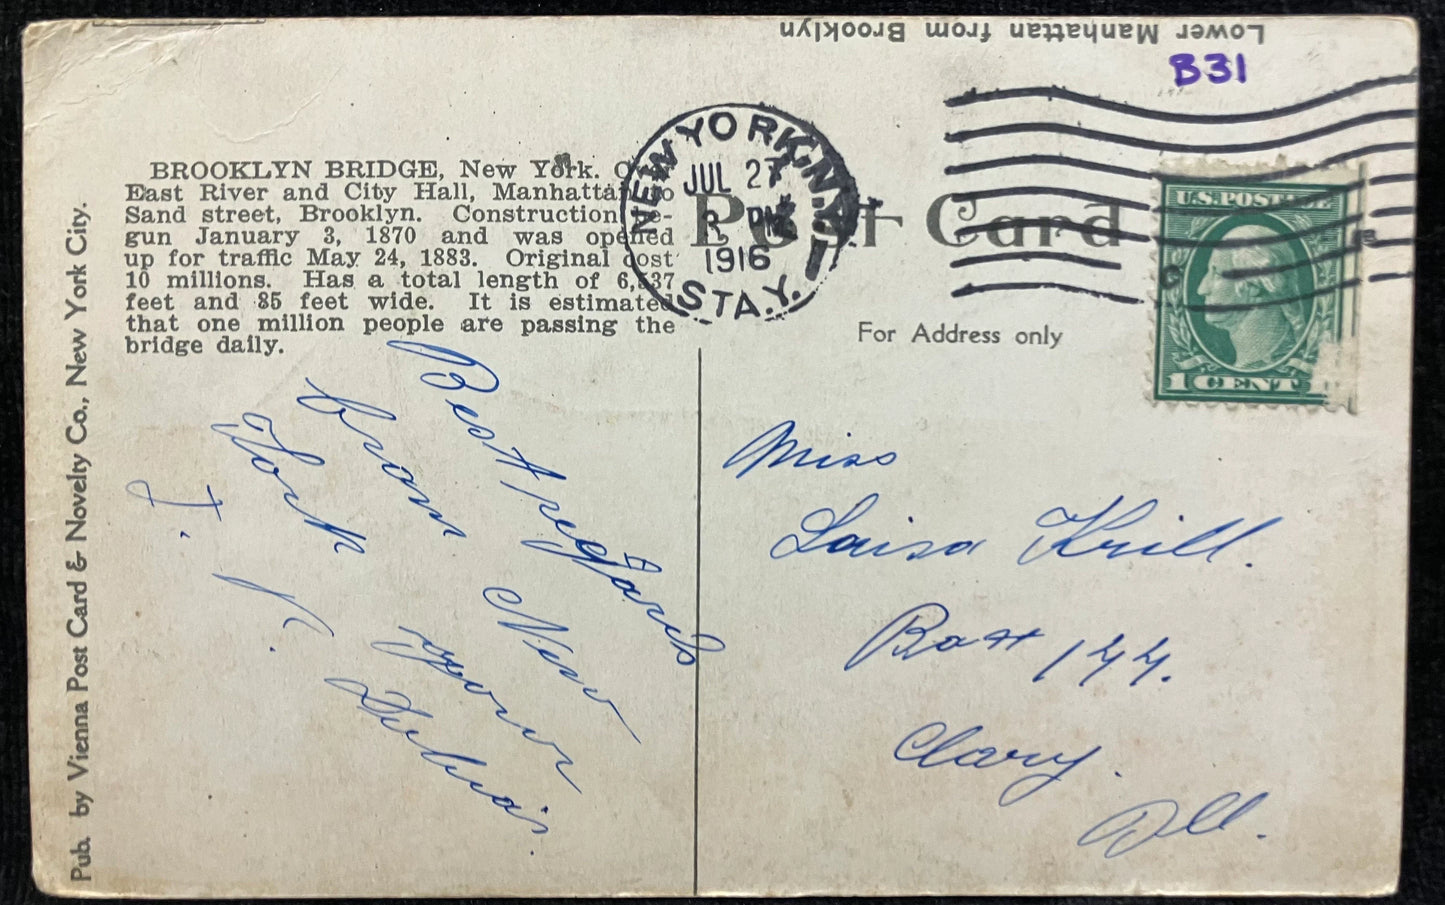 Lower Manhattan from Brooklyn
B31
BROOKLYN BRIDGE, New York.
East River and City Hall, Manhattan, to
Sand street, Brooklyn. Construction be-
gun January 3, 1870 and was opened
up for traffic May 24, 1883. Original cost
10 millions. Has a total length of 6,537
feet and 85 feet wide. It is estimated
that one million people are passing the
bridge daily.
Pub. by Vienna Post Card & Novelty Co., New York City.
NEW YORK, N.Y.
JUL 27
PM
1916
STA. Y.
Post Card
U.S. POSTAGE
1 CENT
For Address only
Best regards
from New
York yours
J. V.
Miss
Laisa Krill.
Box 144.
Clary.
Ill.